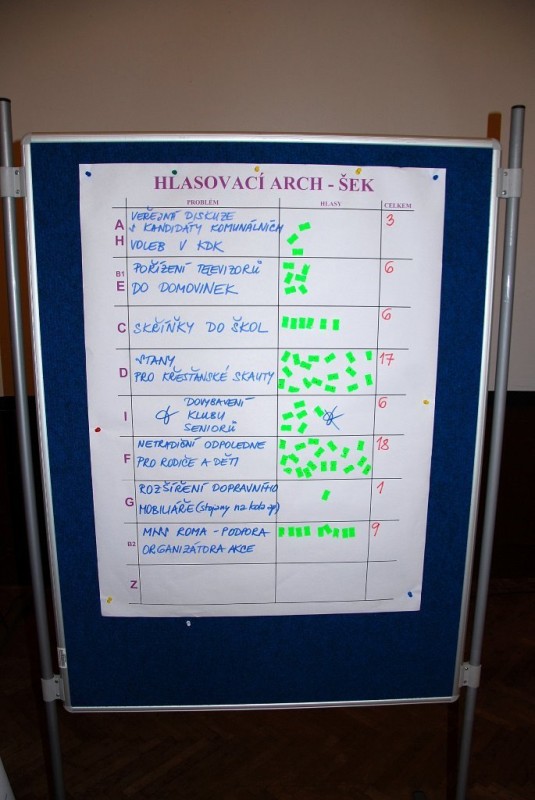 HLASOVACÍ ARCH - ŠEK
PROBLÉM HLASY CELKEM
A VEŘEJNÍ DISKUZE 3
S KANDIDÁTY KOMUNÁLNÍCH
H VOLEB V KDK
B1 POŘÍZENÍ TELEVIZORŮ 6
E DO DOMOVINEK
C SKŘÍŇKY DO ŠKOL 6
STANY 17
D PRO KŘESŤANSKÉ SKAUTY
DOVYBAVENÍ 6
I KLUBU
SENIORŮ
NETRADIČNÍ ODPOLEDNE 18
F PRO RODIČE A DĚTI
ROZŠÍŘENÍ DOPRAVNÍHO 1
G MOBILIÁŘE (stojany na kola
ROMA - PODPORA 9
B2 ORGANIZÁTORA AKCE
Z